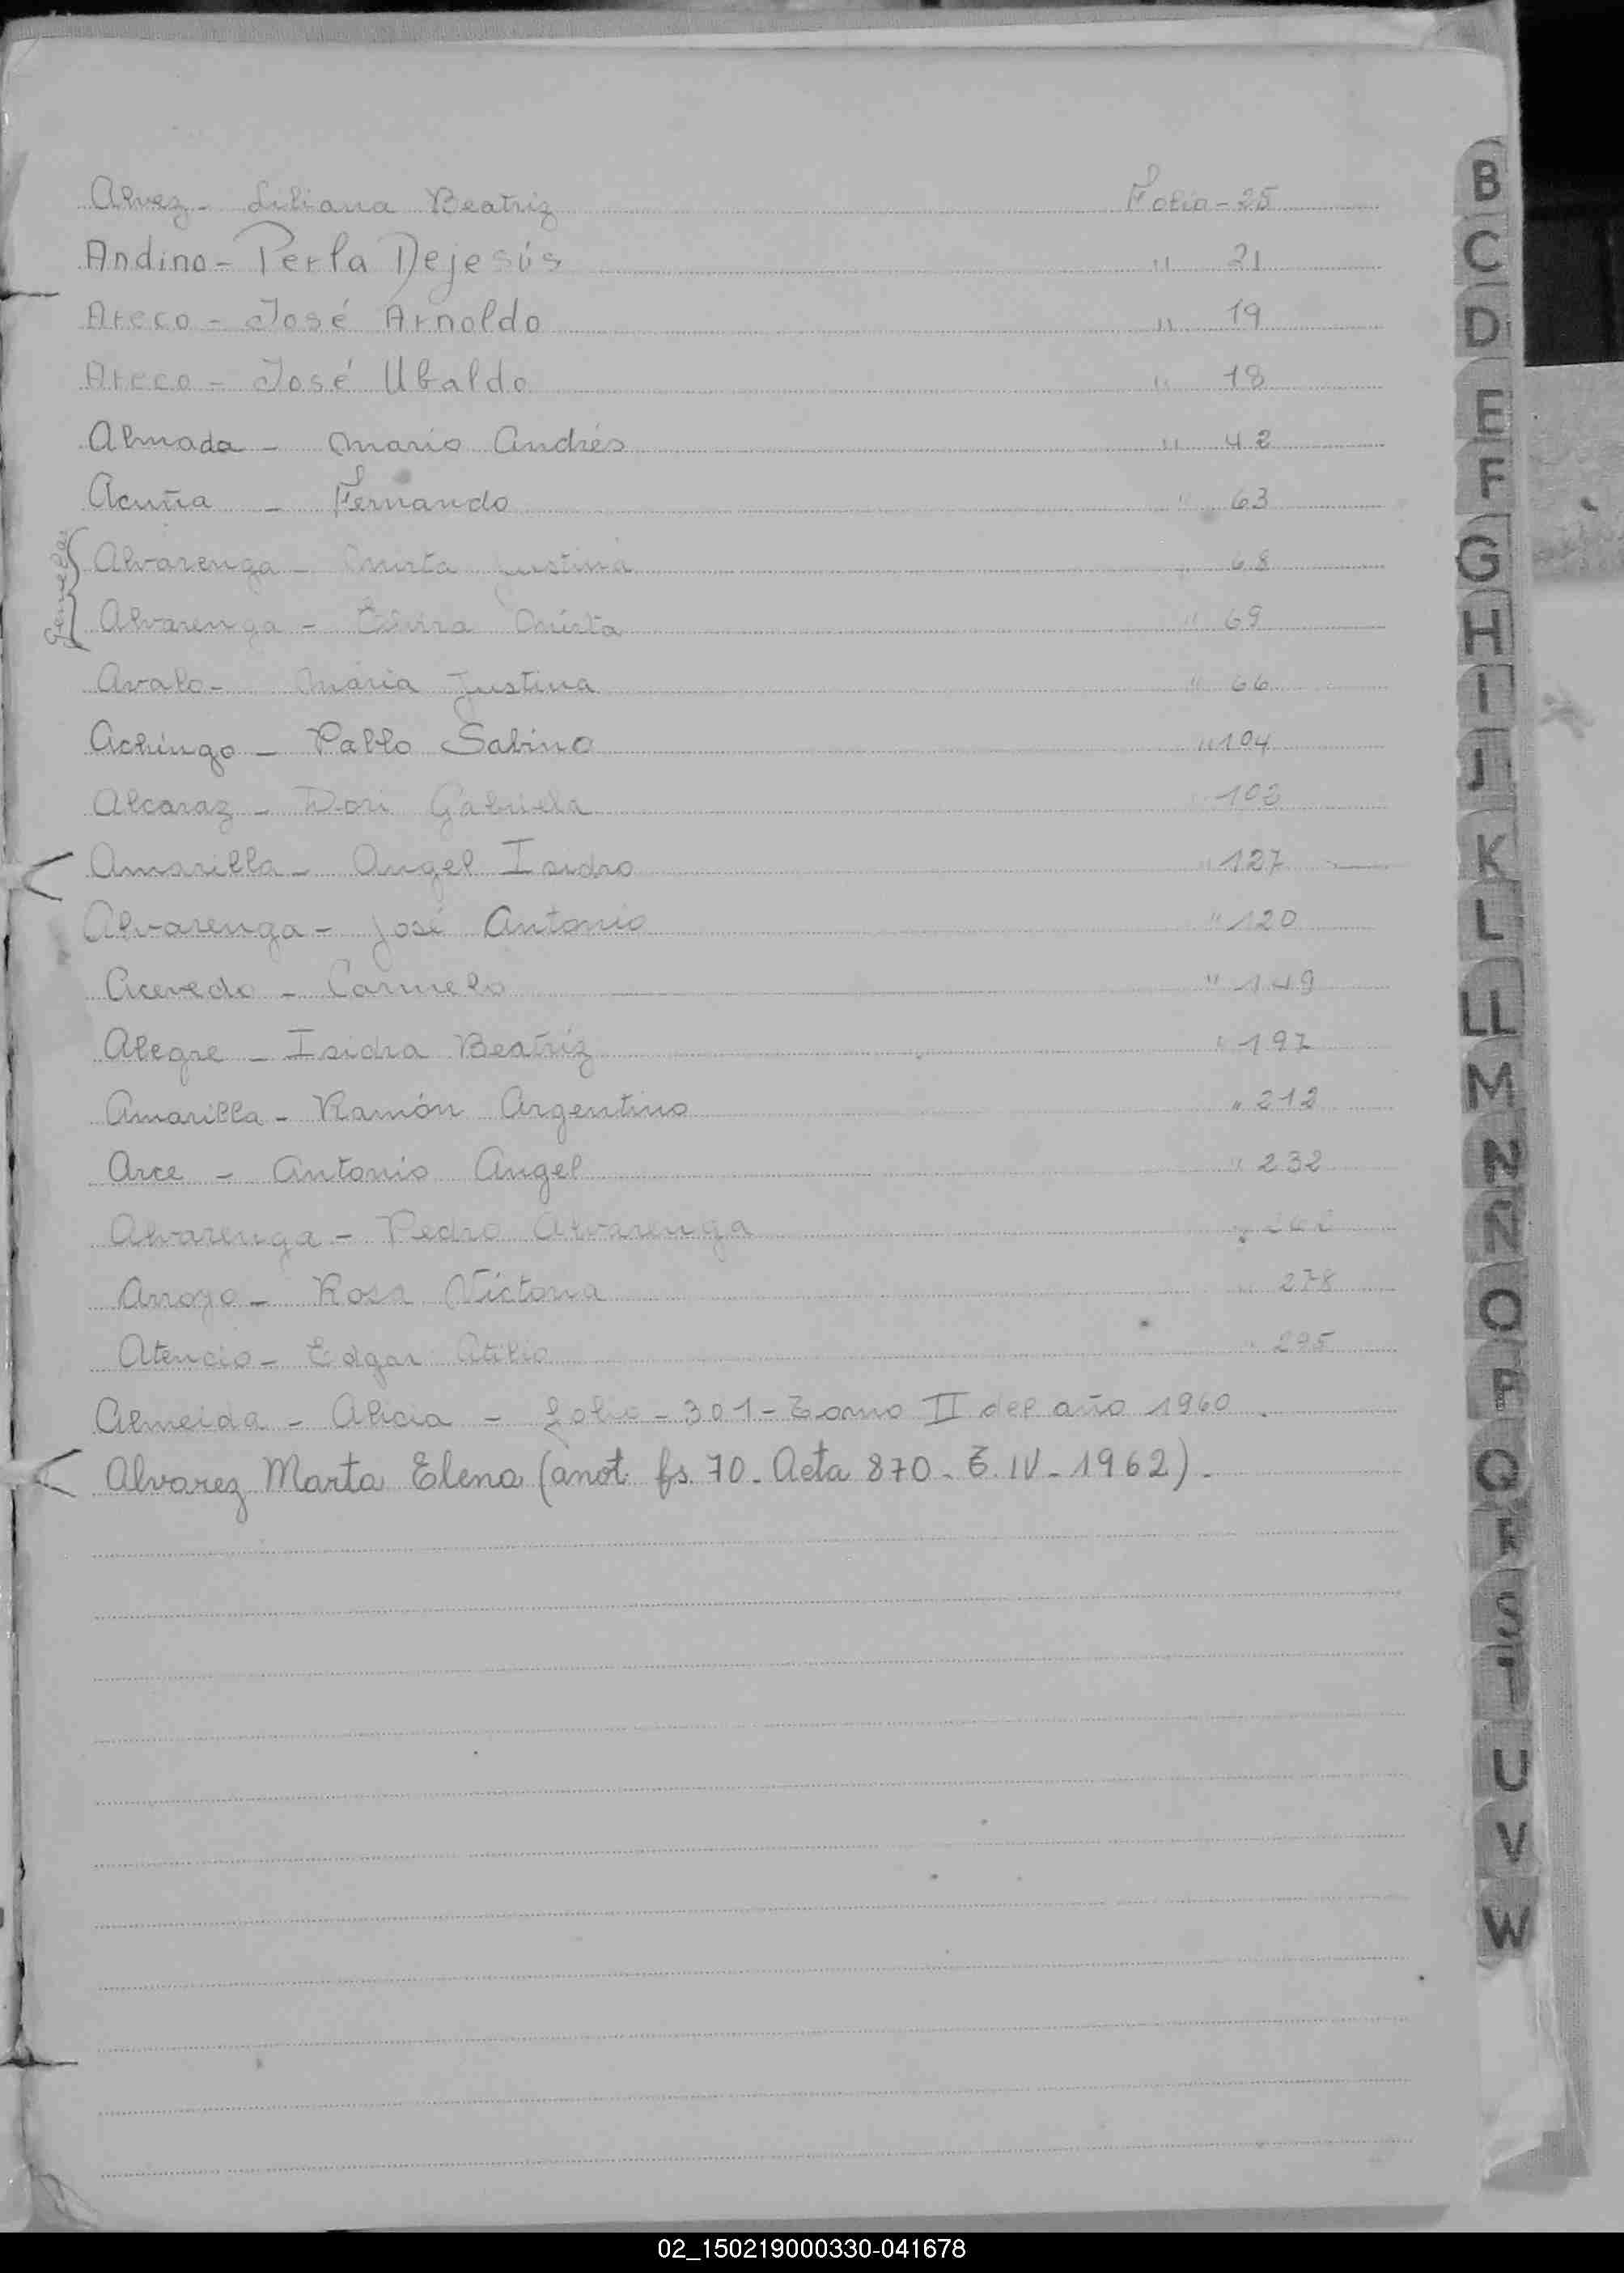 Alvez - Liliana Beatriz Folio - 25
Andino - Perla Dejesús " 21
Areco - José Arnoldo " 19
Areco - José Ubaldo " 18
Almada - Mario Andrés " 42
Acuña - Fernando " 63
Gemelas
Alvarenga - Mirta Justina " 68
Alvarenga - Mirta " 69
Avalo - María Justina " 66
Achingo - Pablo Sabino " 104
Alcaraz - Dori Gabriela " 103
Amarilla - Angel Isidro " 127
Alvarenga - José Antonio " 120
Acevedo - Carmelo " 149
Alegre - Isidra Beatríz " 197
Amarilla - Ramón Argentino " 212
Arce - Antonio Angel " 232
Alvarenga - Pedro Alvarenga "
Arroyo - Rosa Victoria " 278
Atencio - Edgar Atilio " 295
Almeida - Alicia - folio - 301 - Tomo II del año 1960.
Alvarez Marta Elena (anot. fs. 70 - Acta 870 - T. IV - 1962).-
B
C
D
E
F
G
H
I
J
K
L
LL
M
N
Ñ
O
P
Q
R
S
T
U
V
W
02_150219000330-041678